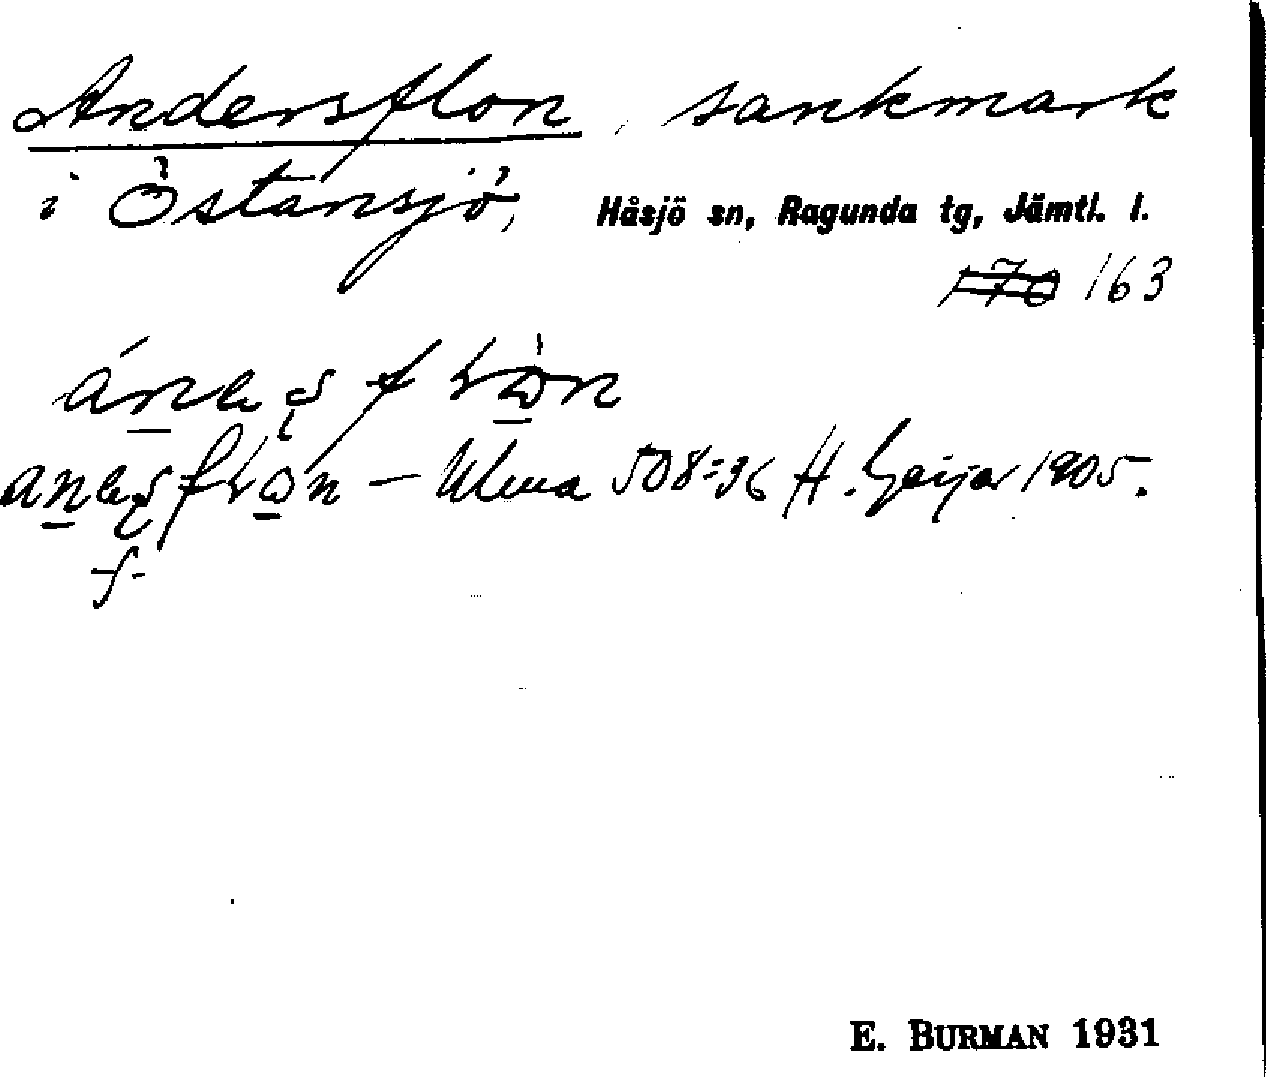 Andersflon, sankmark
i Östansjö, Håsjö sn, Ragunda tg, Jämtl. l.
170 163
– Ulma 508:36 H. Geijer 1905.
f.
E. BURMAN 1931